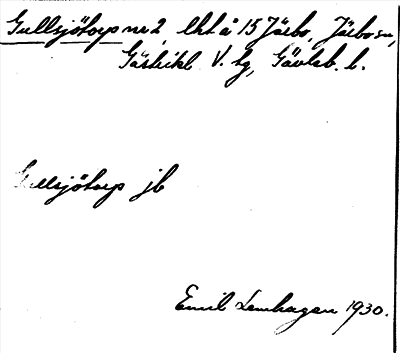 Gullsjötorp nr 2, lht å 15 Järbo, Järbo sn,
Gästrikl. V. tg, Gävleb. l.
Gullsjötorp jb
Emil Lemhagen 1930.